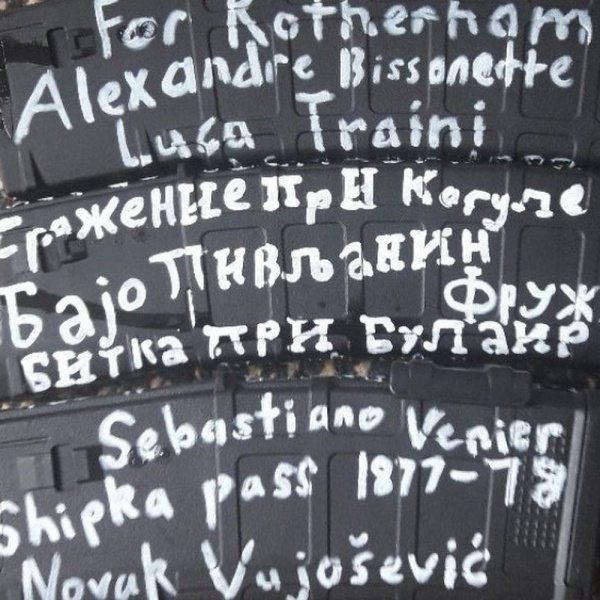 For Rotherham
Alexandre Bissonette
Luca Traini
Сражение при Кагуле
Бајо Пивљанин
Фруж
битка при Булаир
Sebastiano Venier
Shipka pass 1877-78
Novak Vujošević